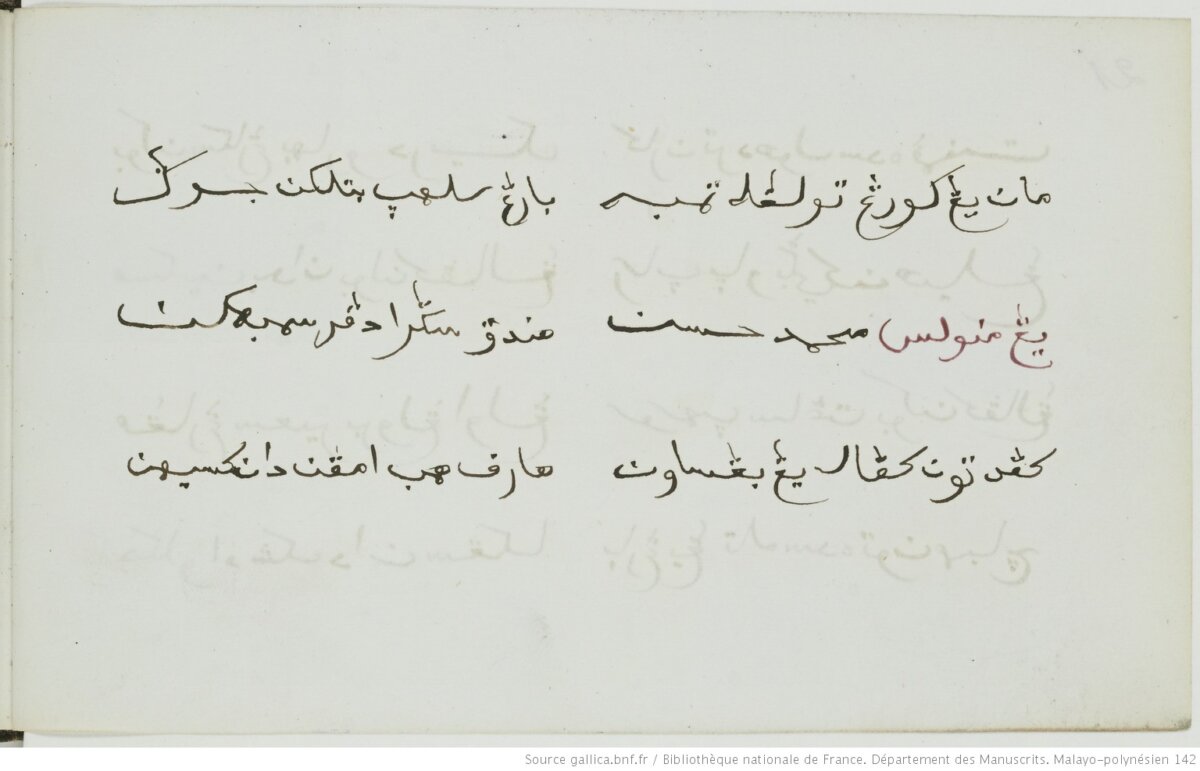 مان يڠ كورڠ تولڠله تمبه بارڠ سلهڽ بتلكن جوݢ
يڠ منولس محمد حسن هندق سڬرا دڤرسمبهكن
كڤد تون كڤال يڠ بڠساون هارف همب امڤن دان كسيهن
Source gallica.bnf.fr / Bibliothèque nationale de France. Département des Manuscrits. Malayo-polynésien 142